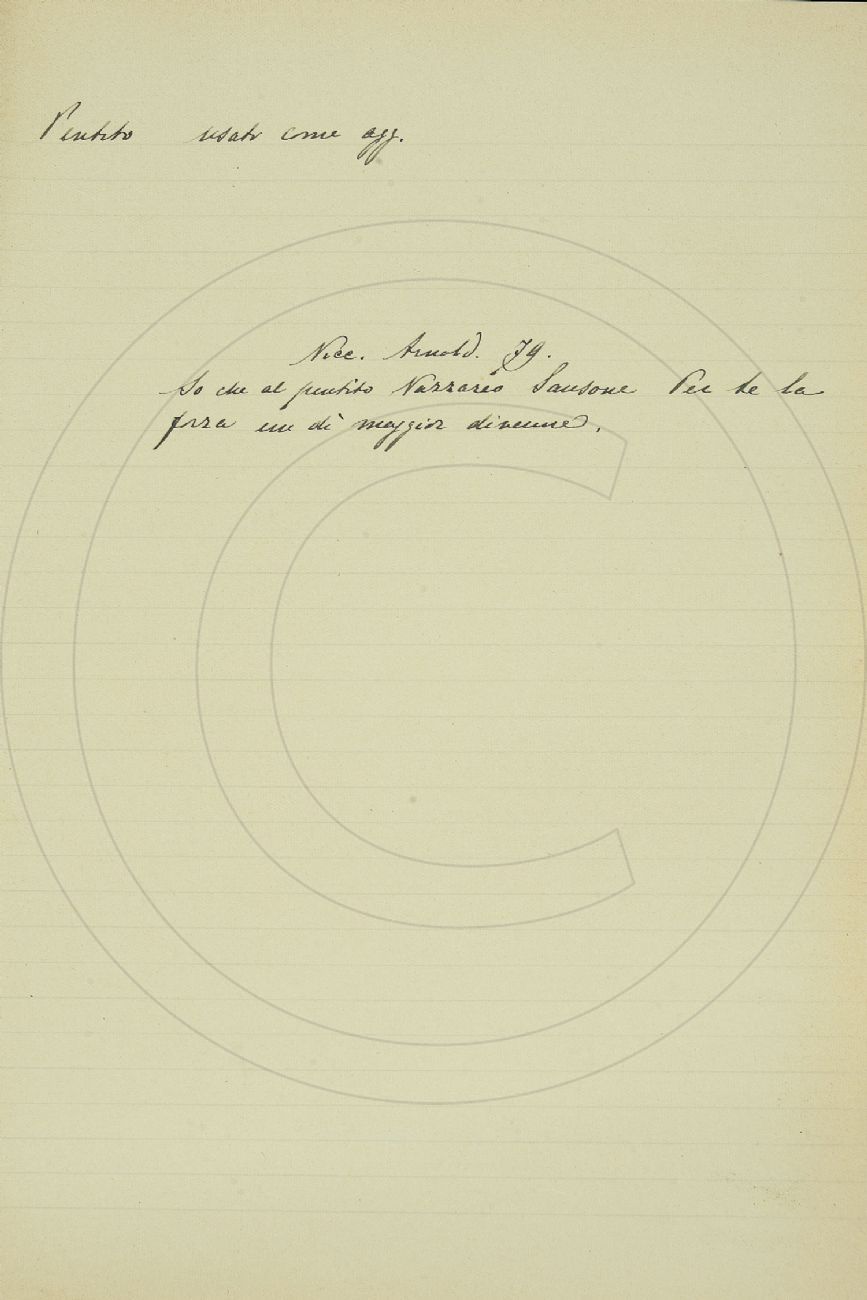 Pentito usato come agg.
Nicc. Arnold. 79.
So che al pentito Nazzareo Sansone Per te la
forza un dì maggior divenne.